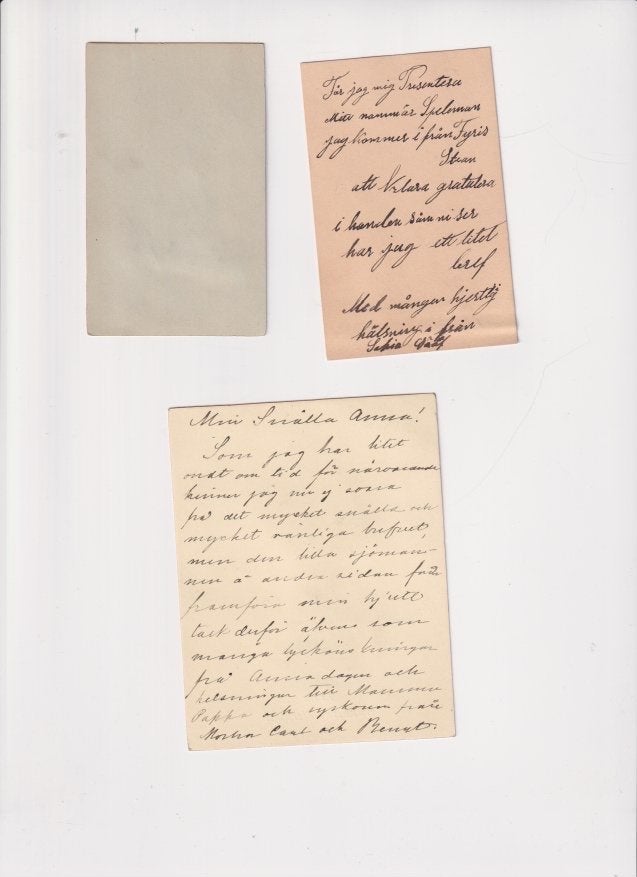 Får jag mig Presentera
Mitt namn är Spelman
jag kommer i från Fyris
Staan
att Klara gratulera
i handen såm ni ser
har jag ett litet
bref
Med mången hjertlig
hälsning i från
Min Snälla Anna!
Som jag har litet
ondt om tid för närvarande
hinner jag nu ej svara
på det mycket snälla och
mycket vänliga brefvet,
men den lilla sjöman-
nen å andra sidan får
framföra min hjertl
tack derför äfvens som
många lyckönskningar
på Annadagen och
helsningar till Mamma
Pappa och syskonen från
Moster Carl och Bengt.